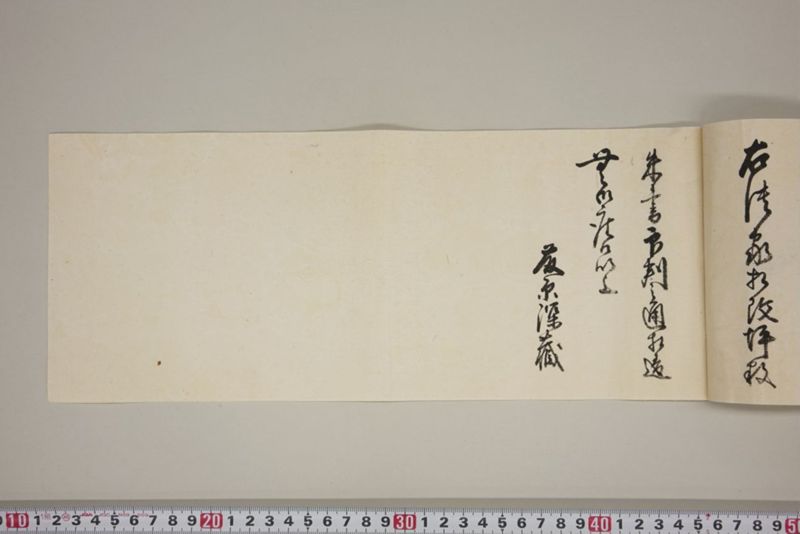 右家相改坪数
朱書割之通相違
無御座候以上
原深蔵
10 1 2 3 4 5 6 7 8 9 20 1 2 3 4 5 6 7 8 9 30 1 2 3 4 5 6 7 8 9 40 1 2 3 4 5 6 7 8 9